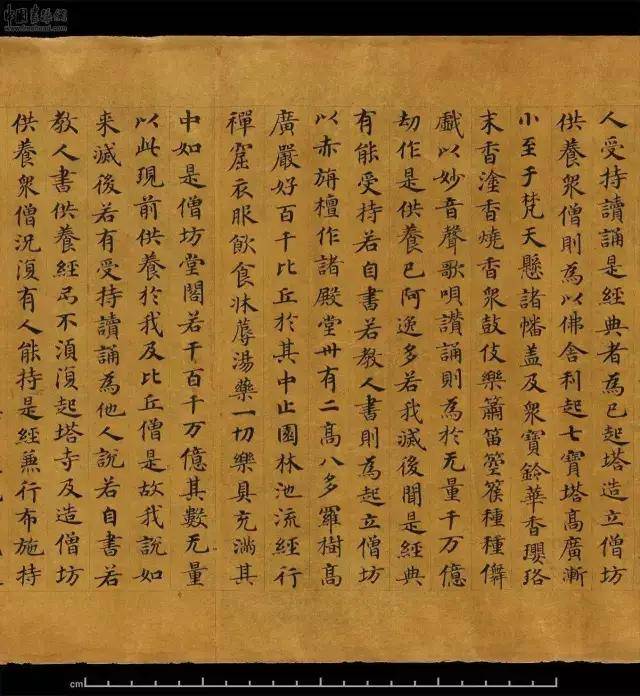 人受持讀誦是經典者為已起塔造立僧坊
供養衆僧則為以佛舍利起七寶塔高廣漸
小至于梵天懸諸幡盖及衆寶鈴華香瓔珞
末香塗香燒香衆鼓伎樂簫笛箜篌種種儛
戲以妙音聲歌唄讚誦則為於无量千万億
劫作是供養已阿逸多若我滅後聞是經典
有能受持若自書若教人書則為起立僧坊
以赤旃檀作諸殿堂卅有二高八多羅樹高
廣嚴好百千比丘於其中止園林池流經行
禪窟衣服飲食牀蓐湯藥一切樂具充滿其
中如是僧坊堂閣若干百千万億其數无量
以此現前供養於我及比丘僧是故我說如
来滅後若有受持讀誦為他人說若自書若
教人書供養經卷不須復起塔寺及造僧坊
供養衆僧況復有人能持是經兼行布施持
cm